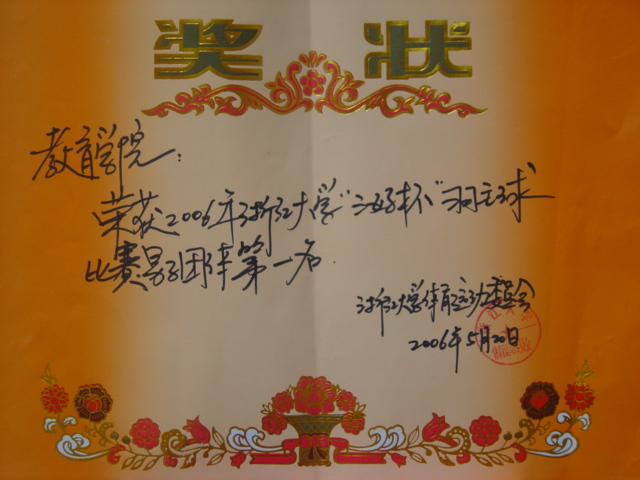 奖状
教育学院：
荣获2006年浙江大学"三好杯"羽毛球
比赛男子团体第一名
浙江大学体育运动委员会
2006年5月20日